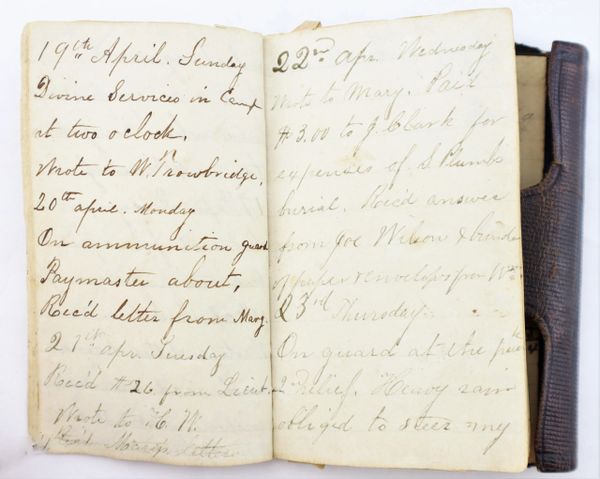 19th April. Sunday
Divine Services in Camp
at two o clock.
Wrote to Wm Trowbridge.
20th april. Monday
On ammunition guard
Paymaster about,
Rec'd letter from Mary.
21st apr. Tuesday
Rec'd $26 from Lieut.
Wrote to H. W.
Mary's letter
22nd apr. Wednesday
Wrote to Mary. Paid
$3.00 to J. Clark for
expenses of S Plumbs
burial. Rec'd answer
from Joe Wilson &
of paper & envelopes from Wm
23rd Thursday.
On guard at the
2nd Relief. Heavy rain
obliged to my